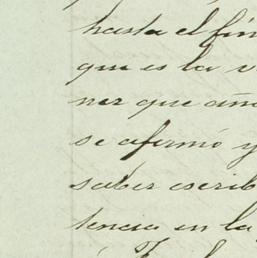 hasta el fin
que es la v
ner que aña
se afirmó y
saber escrib
tencia en la